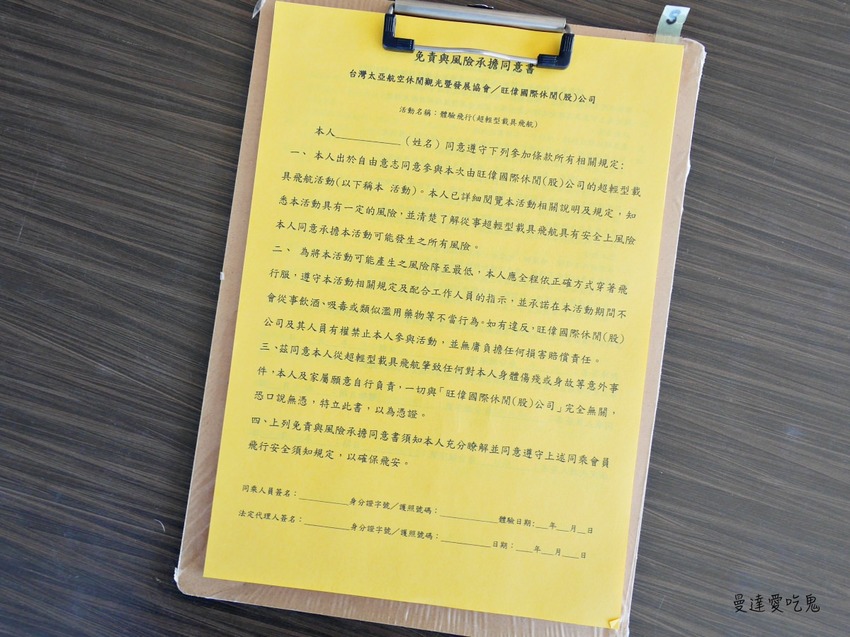 5
免責與風險承擔同意書
台灣太亞航空休閒觀光暨發展協會/旺偉國際休閒(股)公司
活動名稱：體驗飛行(超輕型載具飛航)
本人__________(姓名)同意遵守下列參加條款所有相關規定：
一、 本人出於自由意志同意參與本次由旺偉國際休閒(股)公司的超輕型載
具飛航活動(以下稱本 活動)。本人已詳細閱覽本活動相關說明及規定，知
悉本活動具有一定的風險，並清楚了解從事超輕型載具飛航具有安全上風險
本人同意承擔本活動可能發生之所有風險。
二、 為將本活動可能產生之風險降至最低，本人應全程依正確方式穿著飛
行服，遵守本活動相關規定及配合工作人員的指示，並承諾在本活動期間不
會從事飲酒、吸毒或類似濫用藥物等不當行為。如有違反，旺偉國際休閒(股)
公司及其人員有權禁止本人參與活動，並無庸負擔任何損害賠償責任。
三、茲同意本人從超輕型載具飛航肇致任何對本人身體傷殘或身故等意外事
件，本人及家屬願意自行負責，一切與「旺偉國際休閒(股)公司」完全無關，
恐口說無憑，特立此書，以為憑證。
四、上列免責與風險承擔同意書須知本人充分瞭解並同意遵守上述同乘會員
飛行安全須知規定，以確保飛安。
同乘人員簽名：__________身分證字號/護照號碼：____________體驗日期:___年___月__日
法定代理人簽名：__________身分證字號/護照號碼：__________日期：____年___月____日
曼達愛吃鬼